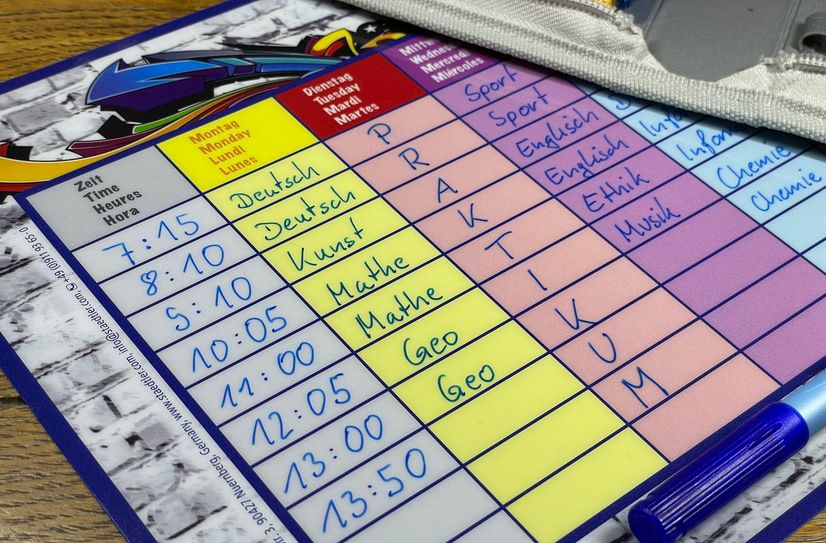 Zeit
Time
Heures
Hora
7:15
8:10
9:10
10:05
11:00
12:05
13:00
13:50
Montag
Monday
Lundi
Lunes
Deutsch
Deutsch
Kunst
Mathe
Mathe
Geo
Geo
Dienstag
Tuesday
Mardi
Martes
P
R
A
K
T
I
K
U
M
Mittw
Wednes
Mercredi
Miércoles
Sport
Sport
Englisch
Englisch
Ethik
Musik
Info
Inform
Chemie
Chemie
tr. 3, 90427 Nuernberg, Germany, www.staedtler.com, info@staedtler.com, ✆ +49 (0)911 93 65-0